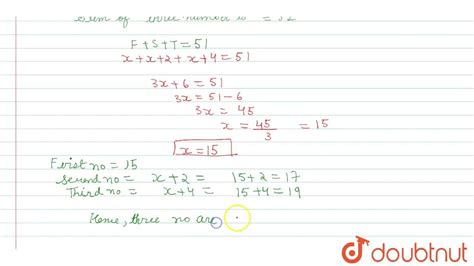 Sum of three number is = 51
F+S+T=51
x+x+2+x+4=51
3x+6=51
3x=51-6
3x=45
x=45/3=15
x=15
First no=15
Second no= x+2= 15+2=17
Third no= x+4= 15+4=19
Hence, three no are :
doubtnut